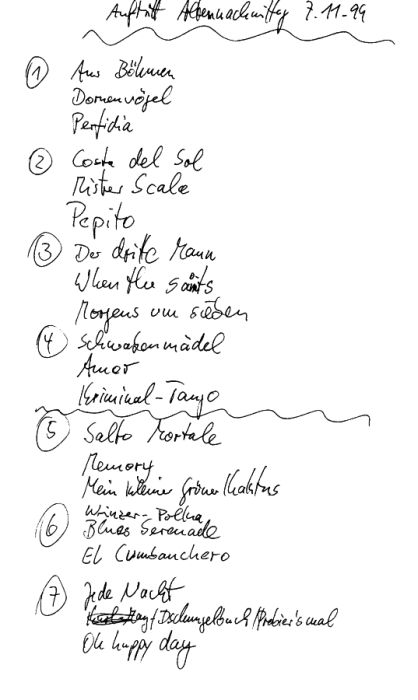 Auftritt Altennachmittag 7.11.99
① Aus Böhmen
Dornenvögel
Perfidia
② Costa del Sol
Mister Scale
Pepito
③ Der dritte Mann
When the saints
Morgens um sieben
④ Schwabenmädel
Amor
Kriminal-Tango
⑤ Salto Mortale
Memory
Mein kleiner grüner Kaktus
⑥ Winzer-Polka
Blues Serenade
El Cumbanchero
⑦ Jede Nacht
Dschungelbuch/Probier's mal
Oh happy day